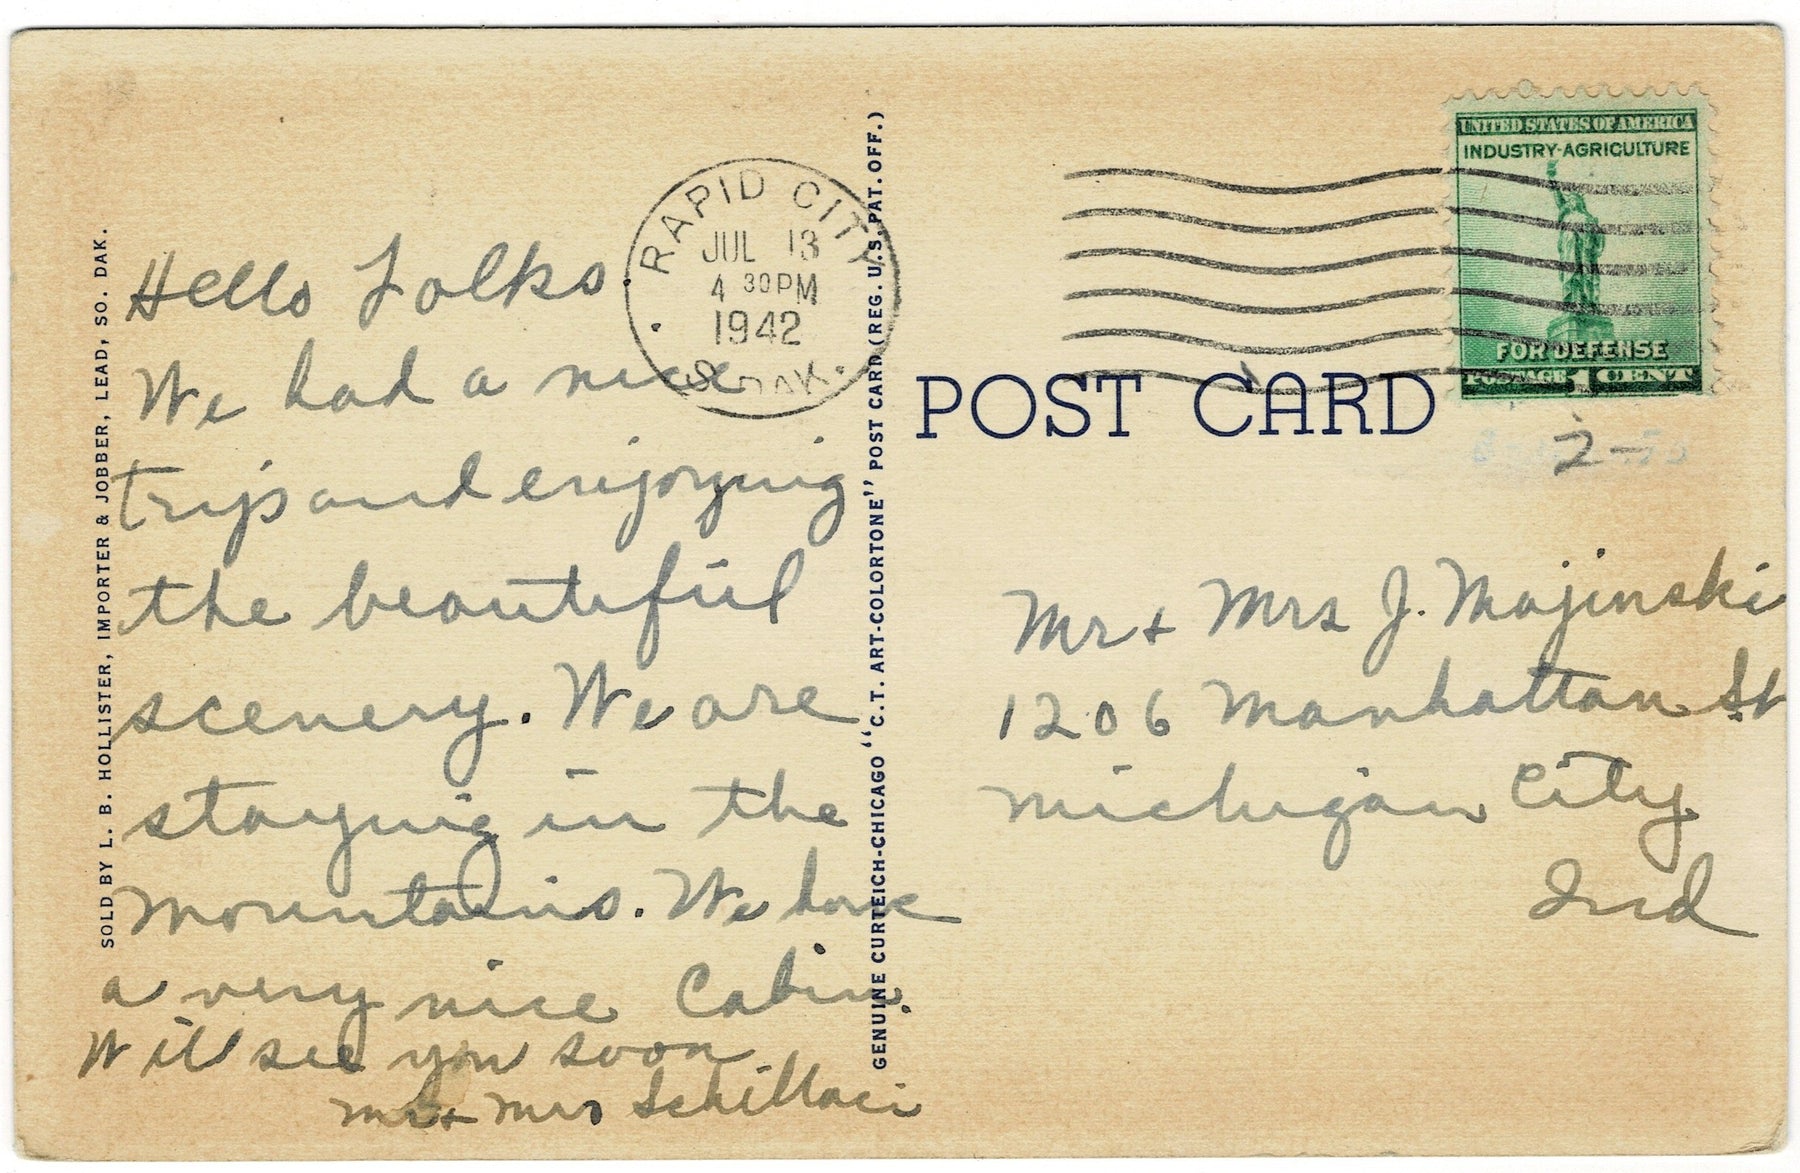 SOLD BY L. B. HOLLISTER, IMPORTER & JOBBER, LEAD, SO. DAK.
Hello Folks.
We had a nice
trip and enjoying
the beautiful
scenery. We are
staying in the
mountains. We have
a very nice Cabin.
Will see you soon
Mr + Mrs Schillaci
RAPID CITY
JUL 13
4 30PM
1942
S. DAK.
GENUINE CURTEICH-CHICAGO "C.T. ART-COLORTONE" POST CARD (REG. U.S. PAT. OFF.)
POST CARD
UNITED STATES OF AMERICA
INDUSTRY-AGRICULTURE
FOR DEFENSE
POSTAGE 1 CENT
2-
Mr + Mrs J. Majinski
1206 Manhattan St
Michigan City
Ind